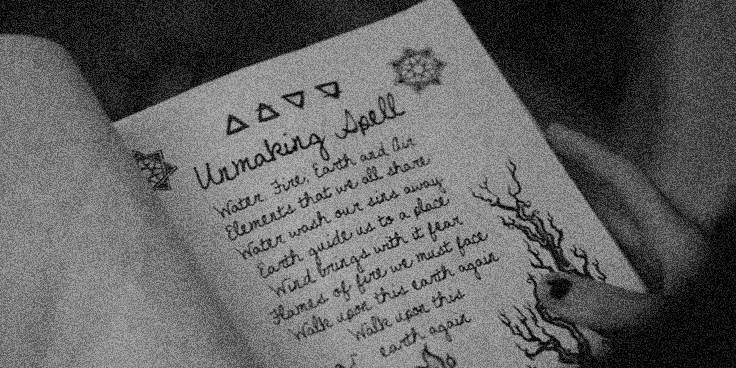 Unmaking Spell
Water Fire, Earth and Air
Elements that we all share
Water wash our sins away
Earth guide us to a place
Wind brings with it fear
Flames of fire we must face
Walk upon this earth again
Walk upon this
earth again